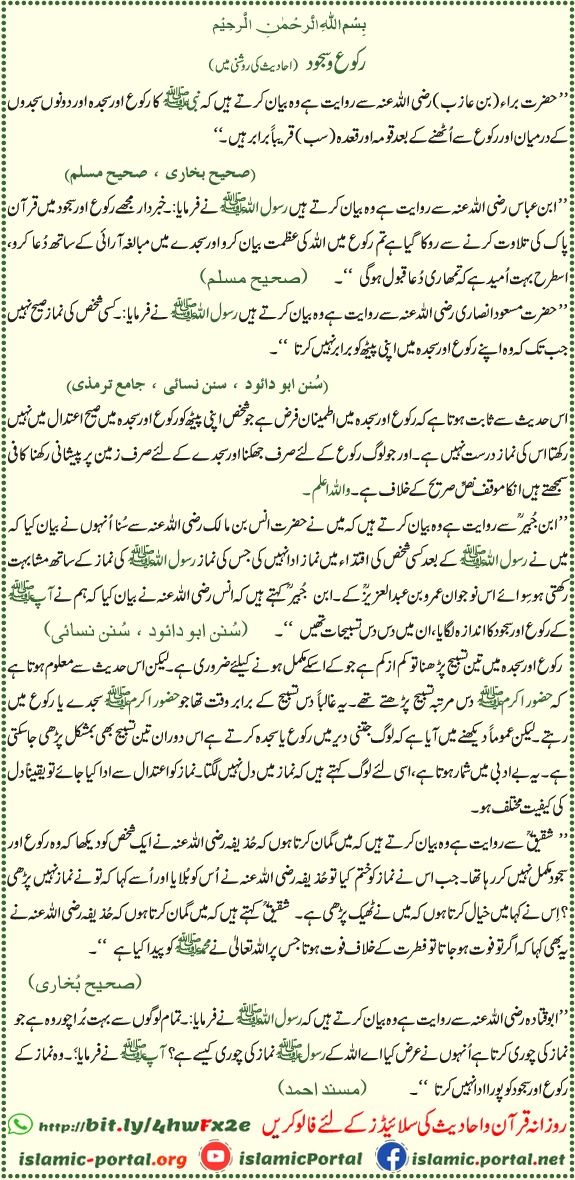 بِسْمِ اللهِ الرَّحْمٰنِ الرَّحِيْمِ
رکوع و سجود (احادیث کی روشنی میں)
’’حضرت براء (بن عازب) رضی اللہ عنہ سے روایت ہے وہ بیان کرتے ہیں کہ نبی ﷺ کا رکوع اور سجدہ اور دونوں سجدوں
کے درمیان اور رکوع سے اُٹھنے کے بعد قومہ اور قعدہ (سب) قریباً برابر ہیں۔‘‘
(صحیح بخاری ، صحیح مسلم)
’’ابن عباس رضی اللہ عنہ سے روایت ہے وہ بیان کرتے ہیں رسول اللہ ﷺ نے فرمایا:۔ خبردار مجھے رکوع اور سجود میں قرآن
پاک کی تلاوت کرنے سے روکا گیا ہے تم رکوع میں اللہ کی عظمت بیان کرو اور سجدے میں مبالغہ آرائی کے ساتھ دُعا کرو،
اسطرح بہت اُمید ہے کہ تمھاری دُعا قبول ہوگی ‘‘۔ (صحیح مسلم)
’’حضرت مسعود انصاری رضی اللہ عنہ سے روایت ہے وہ بیان کرتے ہیں رسول اللہ ﷺ نے فرمایا:۔ کسی شخص کی نماز صحیح نہیں
جب تک کہ وہ اپنے رکوع اور سجدہ میں اپنی پیٹھ کو برابر نہیں کرتا ‘‘۔
(سُنن ابو دائود ، سنن نسائی ، جامع ترمذی)
اس حدیث سے ثابت ہوتا ہے کہ رکوع اور سجدہ میں اطمینان فرض ہے جو شخص اپنی پیٹھ کو رکوع اور سجدہ میں صحیح اعتدال میں نہیں
رکھتا اس کی نماز درست نہیں ہے۔ اور جو لوگ رکوع کے لئے صرف جھکنا اور سجدے کے لئے صرف زمین پر پیشانی رکھنا کافی
سمجھتے ہیں انکا موقف نصِّ صریح کے خلاف ہے۔ واللہ اعلم۔
’’ابن جُبیرؒ سے روایت ہے وہ بیان کرتے ہیں کہ میں نے حضرت انس بن مالک رضی اللہ عنہ سے سُنا اُنہوں نے بیان کیا کہ
میں نے رسول اللہ ﷺ کے بعد کسی شخص کی اقتداء میں نماز ادا نہیں کی جس کی نماز رسول اللہ ﷺ کی نماز کے ساتھ مشابہت
رکھتی ہو سوائے اس نوجوان عمر و بن عبدالعزیزؒ کے۔ ابن جُبیرؒ کہتے ہیں کہ انس رضی اللہ عنہ نے بیان کیا کہ ہم نے آپ ﷺ
کے رکوع اور سجود کا اندازہ لگایا، ان میں دس دس تسبیحات تھیں ‘‘۔ (سُنن ابو دائود ، سُنن نسائی)
رکوع اور سجدہ میں تین تسبیح پڑھنا تو کم از کم ہے جو کے اسکے مکمل ہونے کیلئے ضروری ہے۔ لیکن اس حدیث سے معلوم ہوتا ہے
کہ حضور اکرم ﷺ دس مرتبہ تسبیح پڑھتے تھے۔ یہ غالباً دس تسبیح کے برابر وقت تھا جو حضور اکرم ﷺ سجدے یا رکوع میں
رہتے۔ لیکن عموماً دیکھنے میں آیا ہے کہ لوگ جتنی دیر میں رکوع یا سجدہ کرتے ہے اس دوران تین تسبیح بھی بمشکل پڑھی جاسکتی
ہے۔ یہ بے ادبی میں شمار ہوتا ہے، اسی لئے لوگ کہتے ہیں کہ نماز میں دل نہیں لگتا۔ نماز کو اعتدال سے ادا کیا جائے تو یقیناً دل
کی کیفیت مختلف ہو۔
’’شقیقؒ سے روایت ہے وہ بیان کرتے ہیں کہ میں گمان کرتا ہوں کہ حُذیفہ رضی اللہ عنہ نے ایک شخص کو دیکھا کہ وہ رکوع اور
سجود مکمل نہیں کر رہا تھا۔ جب اس نے نماز کو ختم کیا تو حُذیفہ رضی اللہ عنہ نے اُس کو بُلایا اور اُسے کہا کہ تو نے نماز نہیں پڑھی
؟ اِس نے کہا میں خیال کرتا ہوں کہ میں نے ٹھیک پڑھی ہے۔ شقیقؒ کہتے ہیں کہ میں گمان کرتا ہوں کہ حُذیفہ رضی اللہ عنہ نے
یہ بھی کہا کہ اگر تو فوت ہو جاتا تو فطرت کے خلاف فوت ہوتا جس پر اللہ تعالیٰ نے محمد ﷺ کو پیدا کیا ہے ‘‘۔
(صحیح بُخاری)
’’ابو قتادہ رضی اللہ عنہ سے روایت ہے وہ بیان کرتے ہیں کہ رسول اللہ ﷺ نے فرمایا:۔ تمام لوگوں سے بہت بُرا چور وہ ہے جو
نماز کی چوری کرتا ہے اُنہوں نے عرض کیا اے اللہ کے رسول ﷺ نماز کی چوری کیسے ہے؟ آپ ﷺ نے فرمایا؟۔ وہ نماز کے
رکوع اور سجود کو پورا ادا نہیں کرتا ‘‘۔ (مسند احمد)
روزانہ قرآن و احادیث کی سلائیڈز کے لئے فالو کریں http://bit.ly/4hwFx2e
islamic-portal.org islamicPortal islamic.portal.net